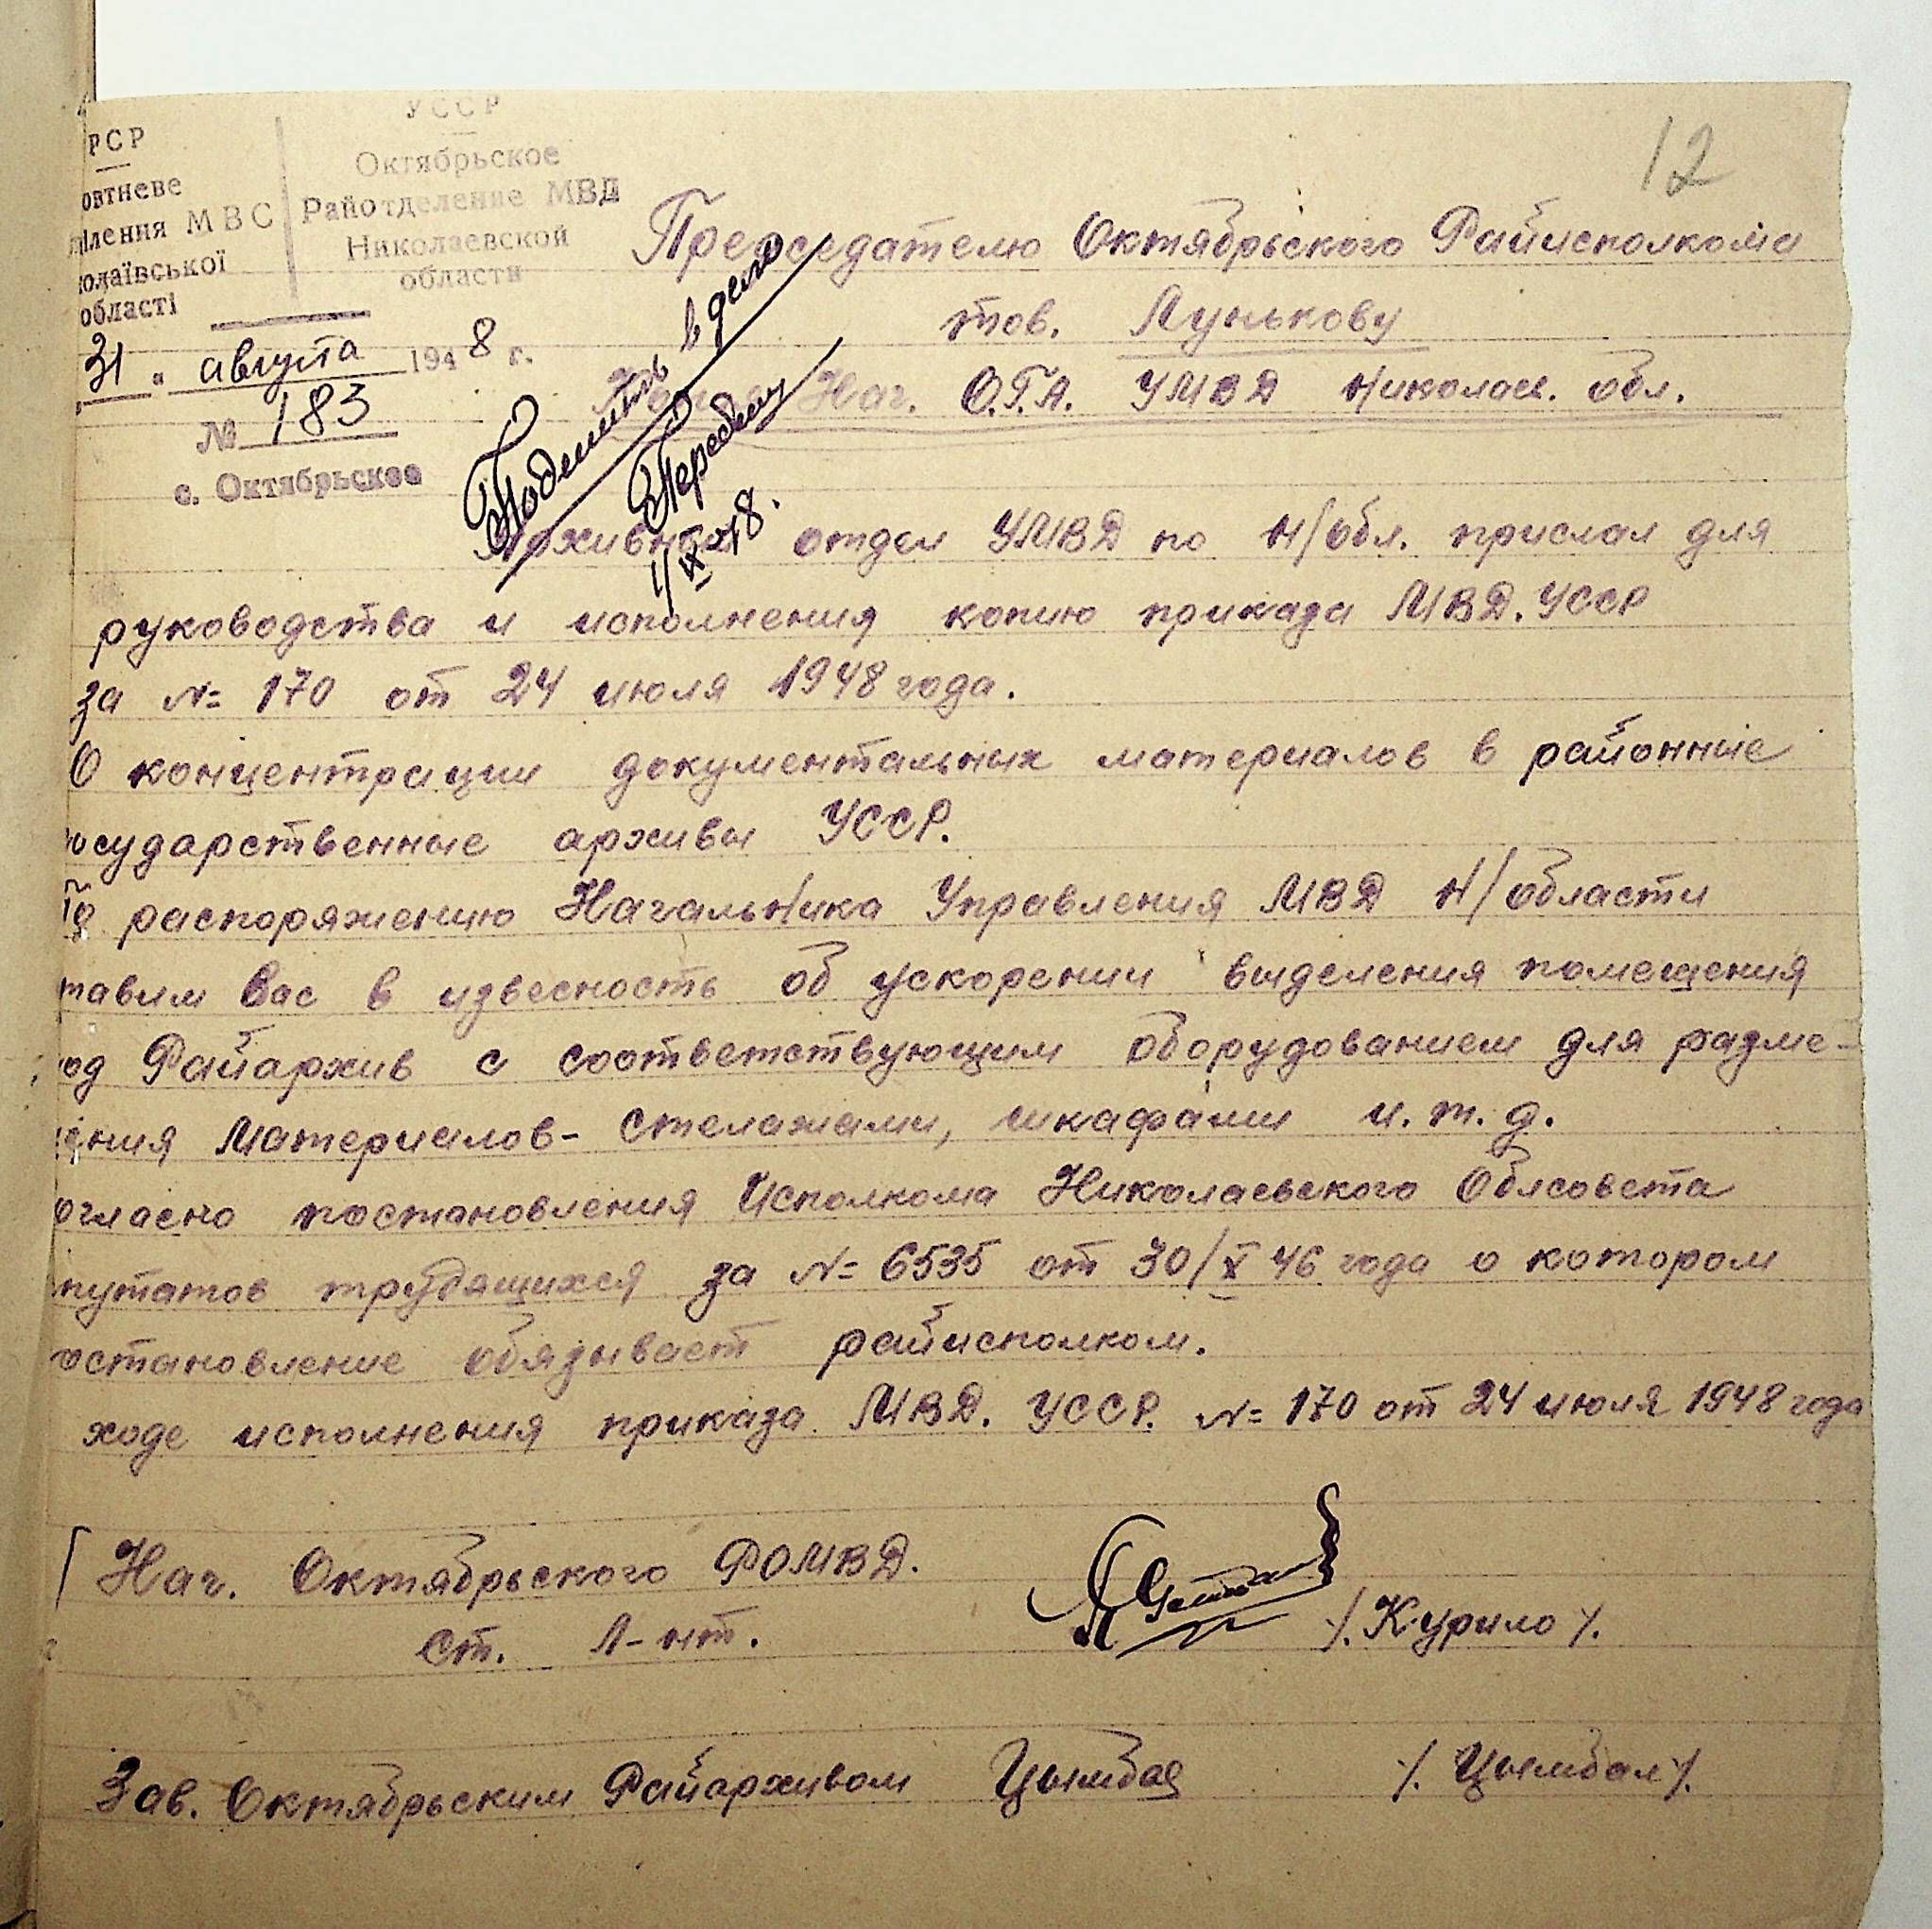 12
РСР
овтневе
ілення МВС
олаївської
області
УССР
Октябрьское
Райотделение МВД
Николаевской
области
31 " августа 1948 г.
№ 183
с. Октябрьское
Председателю Октябрьского Райисполкома
тов. Лунькову
Копия Нач. О.Г.А. УМВД Николаев. обл.
Подшить в дело
1/IX 48.
Архивный отдел УМВД по Н/обл. прислал для
руководства и исполнения копию приказа МВД. УССР
за № 170 от 24 июля 1948 года.
О концентрации документальных материалов в районные
осударственные архивы УССР.
По распоряжению Начальника Управления МВД Н/области
тавим Вас в извесность об ускорении выделения помещения
од Райархив с соответствующим оборудованием для разме-
ения материалов- стелажами, шкафами и. т. д.
огласно постановления Исполкома Николаевского Облсовета
путатов трудящихся за № 6535 от 30/X 46 года о котором
остановление обязывает райисполком.
ходе исполнения приказа МВД. УССР. № 170 от 24 июля 1948 года
Нач. Октябрьского РОМВД.
Ст. Л-нт. /. Курило /.
Зав. Октябрьским Райархивом Цымбал /. Цымбал /.